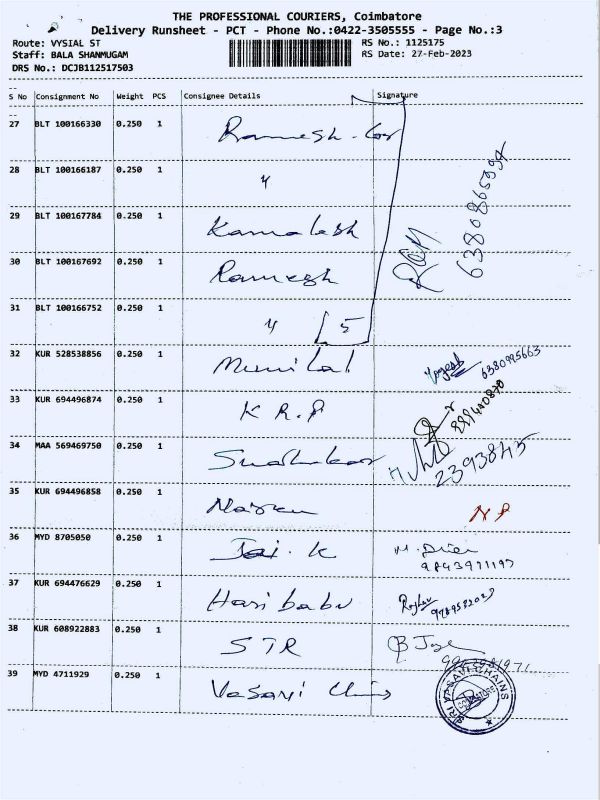 THE PROFESSIONAL COURIERS, Coimbatore
Delivery Runsheet - PCT - Phone No.:0422-3505555 - Page No.:3
Route: VYSIAL ST RS No.: 1125175
Staff: BALA SHANMUGAM RS Date: 27-Feb-2023
DRS No.: DCJB112517503
S No Consignment No Weight PCS Consignee Details Signature
27 BLT 100166330 0.250 1 Ramesh.
28 BLT 100166187 0.250 1 〃
29 BLT 100167784 0.250 1 Kamalesh
30 BLT 100167692 0.250 1 Ramesh
31 BLT 100166752 0.250 1 〃 5
32 KUR 528538856 0.250 1 Munilal Yogesh 6380995663
33 KUR 694496874 0.250 1 K R.P
34 MAA 569469750 0.250 1 Sudhakar 2393845
35 KUR 694496858 0.250 1 NP
36 MYD 8705050 0.250 1 Jai. K M.
37 KUR 694476629 0.250 1 Hari babu
38 KUR 608922883 0.250 1 STR
39 MYD 4711929 0.250 1 Vasavi
SRI VASAVI CHAINS